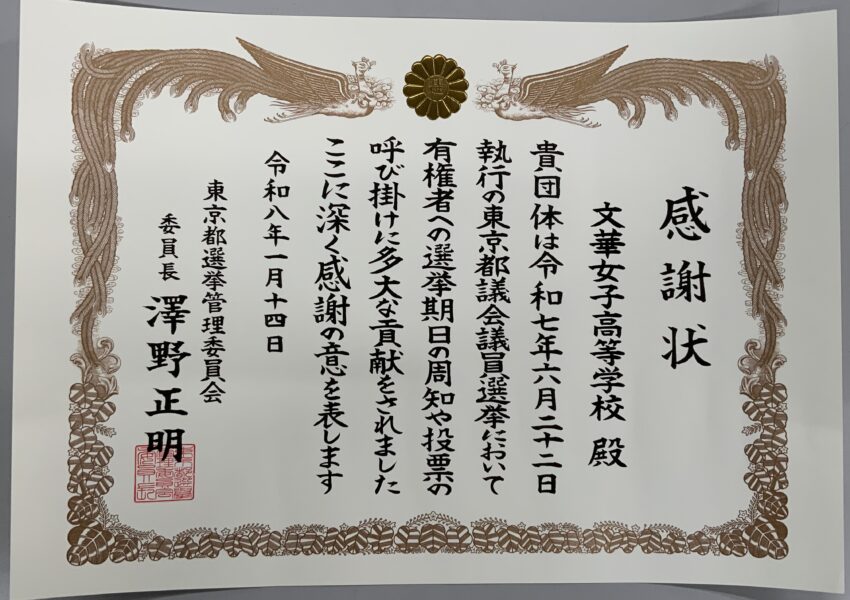 感謝状
文華女子高等学校 殿
貴団体は令和七年六月二十二日
執行の東京都議会議員選挙において
有権者への選挙期日の周知や投票の
呼び掛けに多大な貢献をされました
ここに深く感謝の意を表します
令和八年一月十四日
東京都選挙管理委員会
委員長 澤野正明